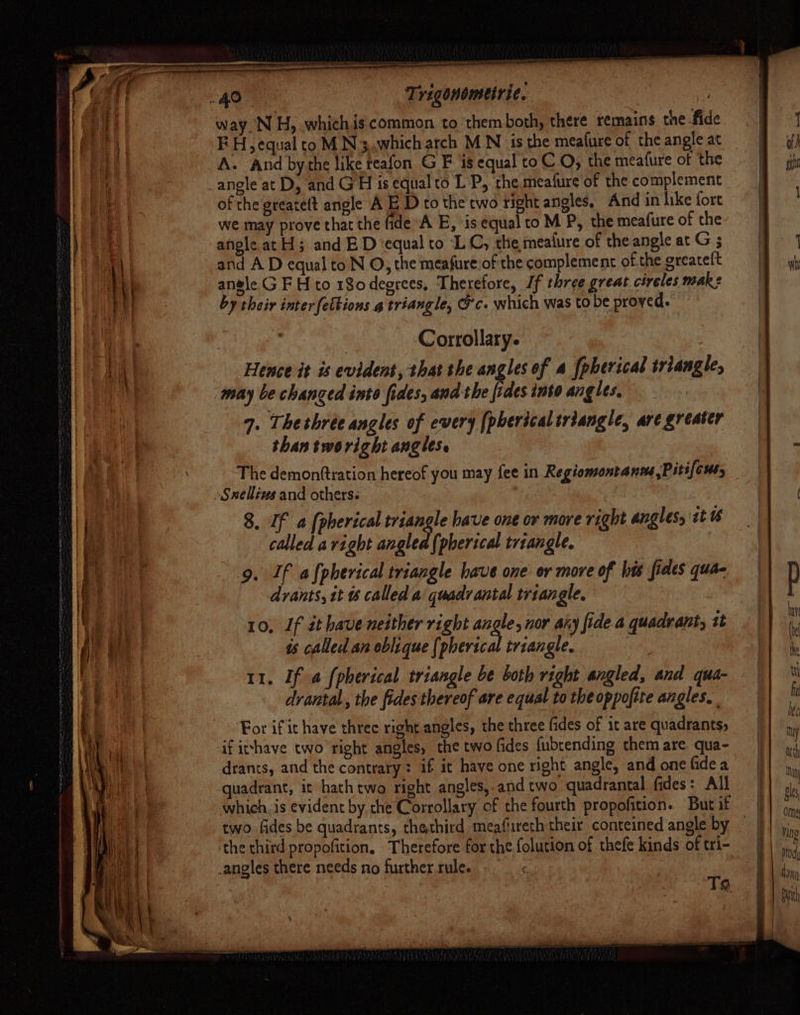 40 Trigonometrie.
way N H, which is common to them both, there remains the ſide
F H, equal to M N; which arch M N is the meaſure of the angle at
A. And by the like reaſon G F is equal to C O, the meaſure of the
angle at D, and G H is equal to L P, the meaſure of the complement
of the greateſt angle A E D to the two right angles. And in like ſort
we may prove that the ſide A E, is equal to M P, the meaſure of the
angle at H; and E D equal to L C, the meaſure of the angle at G;
and A D equal to N O, the meaſure of the complement of the greateſt
angle G F H to 180 degrees. Therefore, If three great circles make
by their interſections a triangle, &c. which was to be proved.
Corrollary.
Hence it is evident, that the angles of a ſpherical triangle,
may be changed into ſides, and the ſides into angles.
7. The three angles of every ſpherical triangle, are greater
than two right angles.
The demonſtration hereof you may ſee in Regiomontanus, Pitiſcus,
Snellius and others.
8. If a ſpherical triangle have one or more right angles, it is
called a right angled ſpherical triangle.
9. If a ſpherical triangle have one or more of his ſides qua-
drants, it is called a quadrantal triangle.
10. If it have neither right angle, nor any ſide a quadrant, it
is called an oblique ſpherical triangle.
11. If a ſpherical triangle be both right angled, and qua-
drantal, the ſides thereof are equal to the oppoſite angles.
For if it have three right angles, the three ſides of it are quadrants,
if it have two right angles, the two ſides ſubtending them are qua-
drants, and the contrary: if it have one right angle, and one ſide a
quadrant, it hath two right angles, and two quadrantal ſides: All
which is evident by the Corrollary of the fourth propoſition. But if
two ſides be quadrants, the third meaſureth their conteined angle by
the third propoſition. Therefore for the ſolution of theſe kinds of tri-
angles there needs no further rule.
To